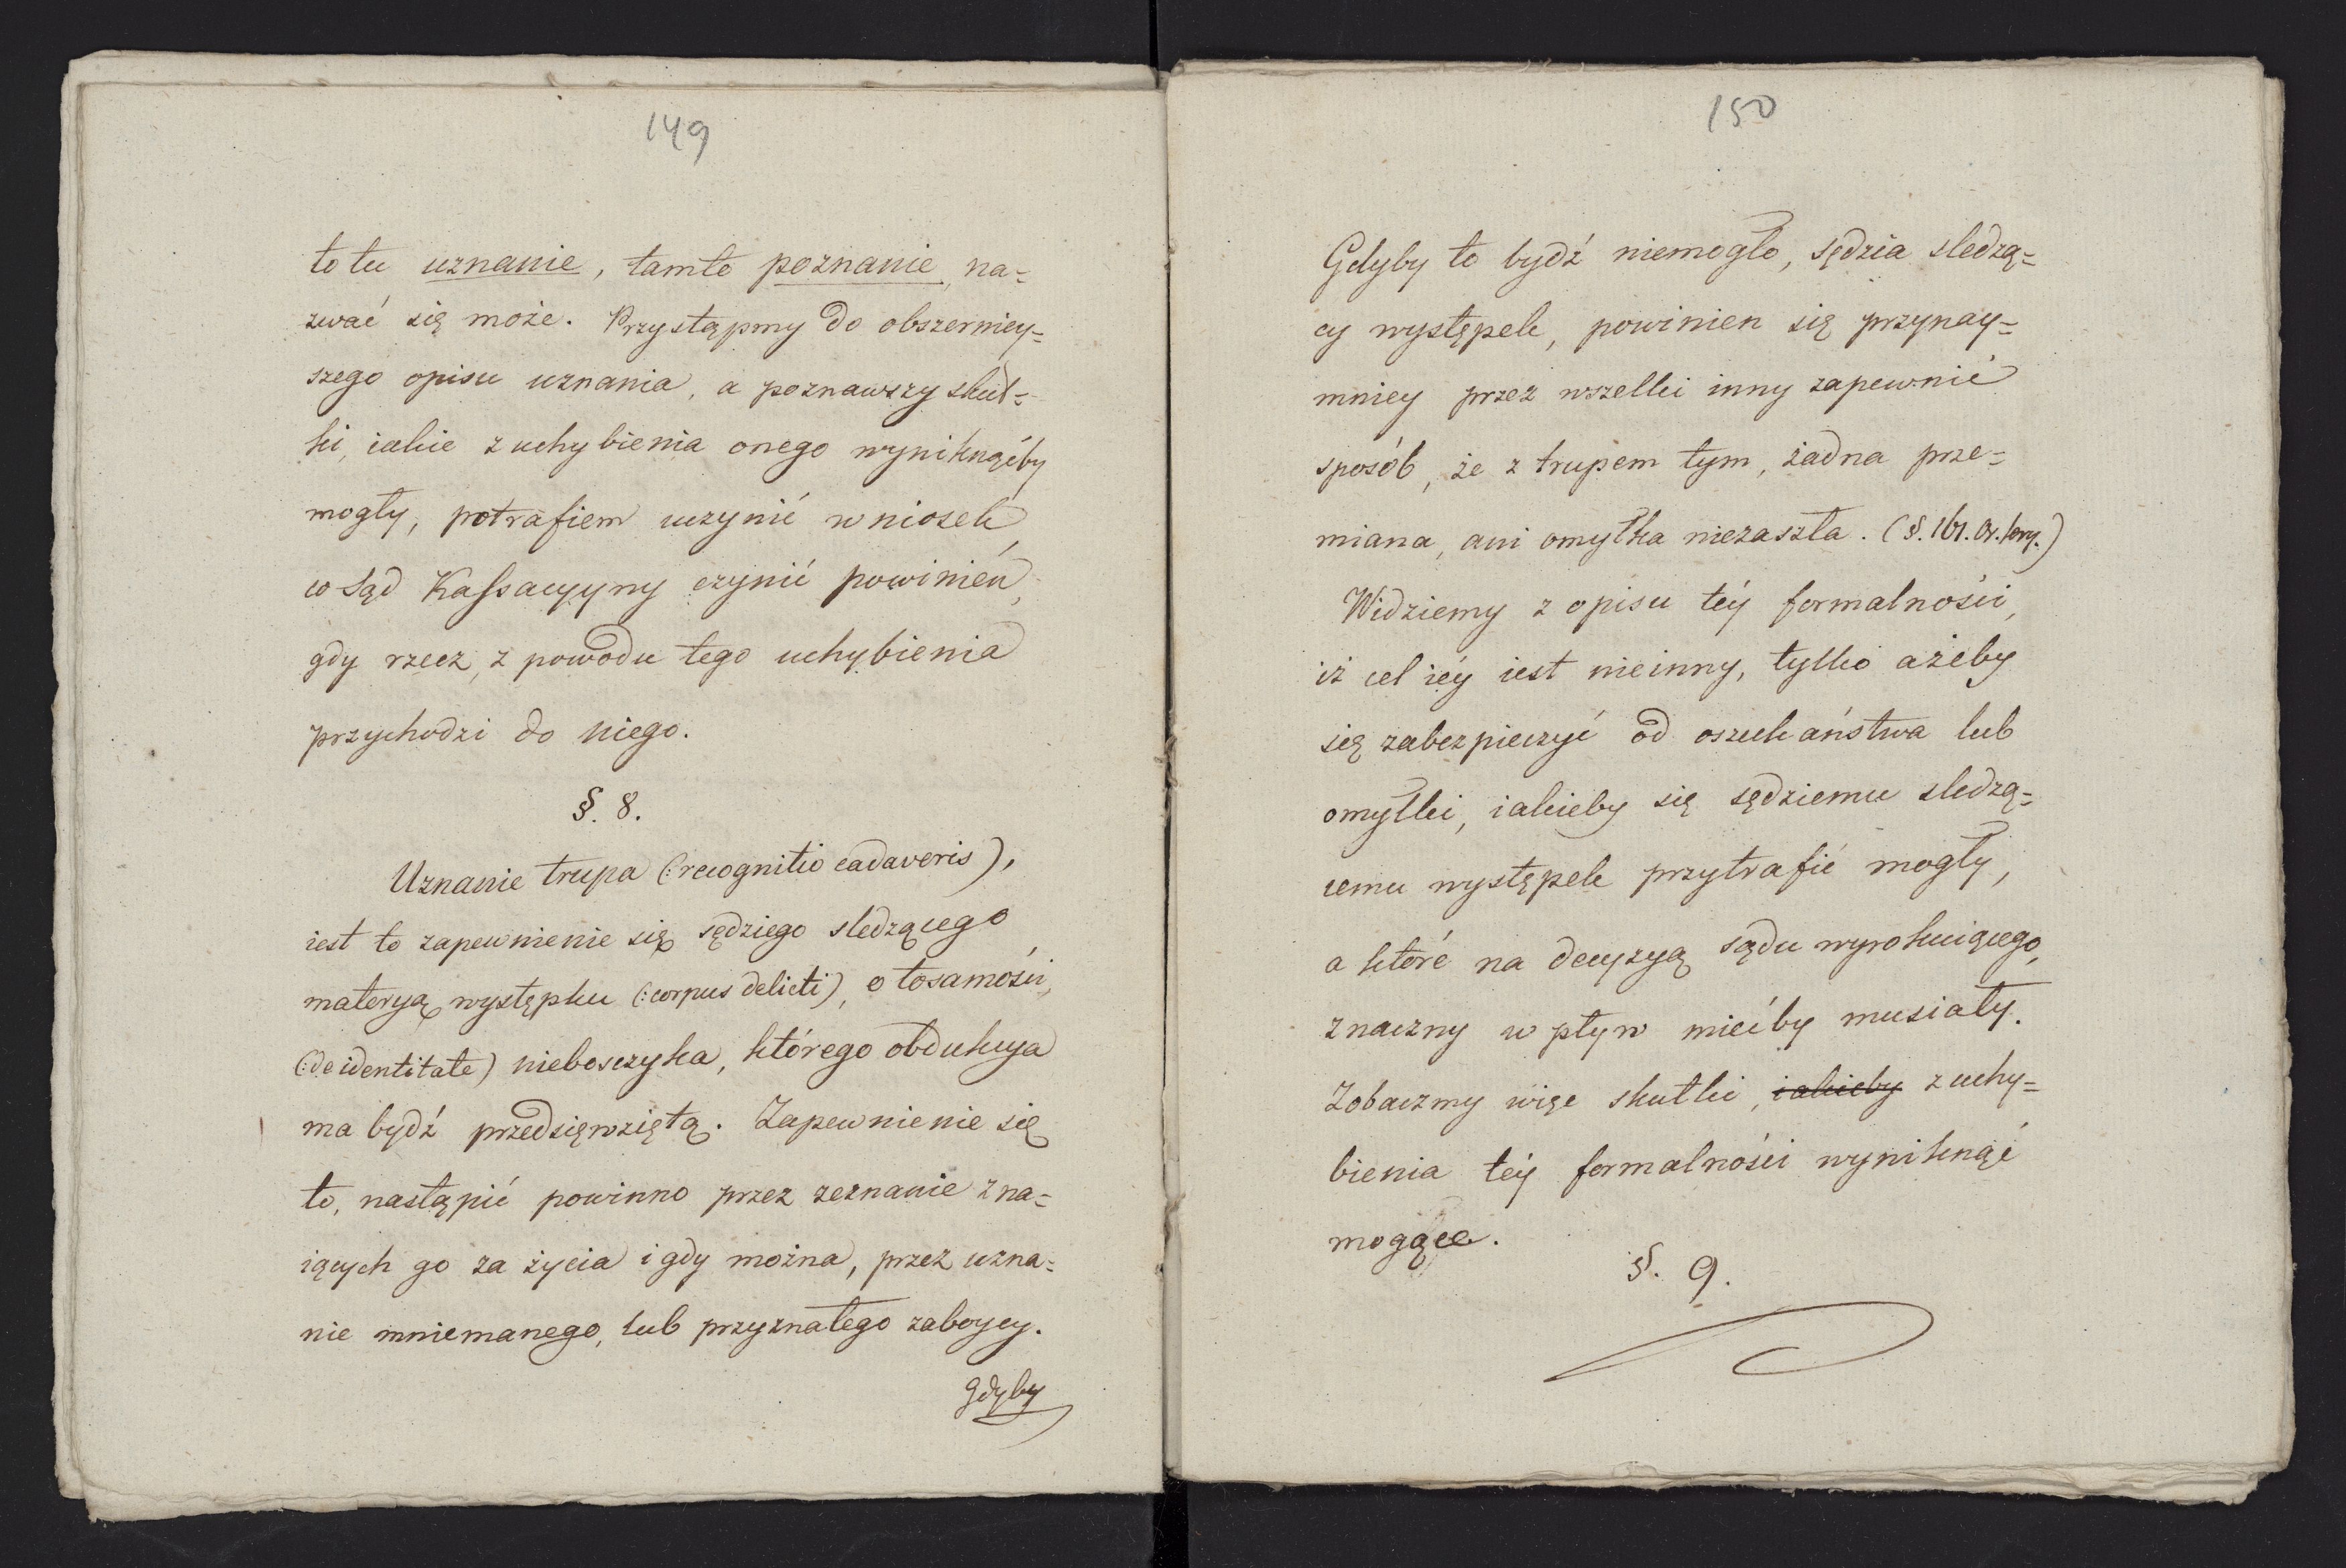 149
to tu uznanie, tamto poznanie, na=
zwać się może. Przystąpmy do obszerniey=
szego opisu uznania, a poznawszy skut=
ki, iakie z uchybienia onego wyniknąćby
mogły, potrafiem uczynić wniosek,
co Sąd Kassacyyny czynić powinień,
gdy rzecz, z powodu tego uchybienia
przychodzi do niego.
§. 8.
Uznanie trupa (: recognitio cadaveris),
iest to zapewnienie się sędziego sledzącego,
materyą występku (: corpus delicti), o tosamości,
(: de identitate) nieboszczyka, którego obdukcya
ma bydź przedsięwziętą. Zapewnienie się
to, nastąpić powinno przez zeznanie zna=
iących go za życia i gdy można, przez uzna=
nie mniemanego, lub przyznałego zaboycy.
Gdyby
150
Gdyby to bydź niemogło, sędzia sledzą=
cy występek, powinien się przynay=
mniey przez wszelki inny zapewnić
sposób, że z trupem tym, żadna prze=
miana, ani omyłka niezaszła. (§. 161. Or. kry.)
Widziemy z opisu téy formalności,
iż cel iéy iest nie inny, tylko ażeby
się zabezpieczyć od oszukaństwa lub
omyłki, iakieby się sędziemu sledzą=
cemu występek przytrafić mogły,
a któré na decyzyą sądu wyrokuiącego,
znaczny wpływ miećby musiały.
Zobaczmy więc skutki, iakieby z uchy=
bienia téy formalności wyniknąć
mogące.
§. 9.